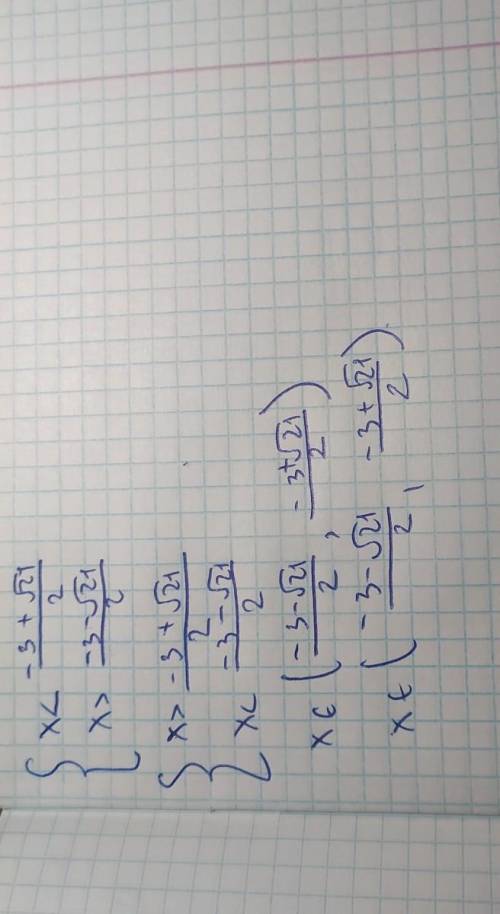 { x < (-3 + √21)/2
x > (-3 - √21)/2
{ x > (-3 + √21)/2
x < (-3 - √21)/2
x ∈ ( (-3 - √21)/2 , (-3 + √21)/2 )
x ∈ ( (-3 - √21)/2 , (-3 + √21)/2 )